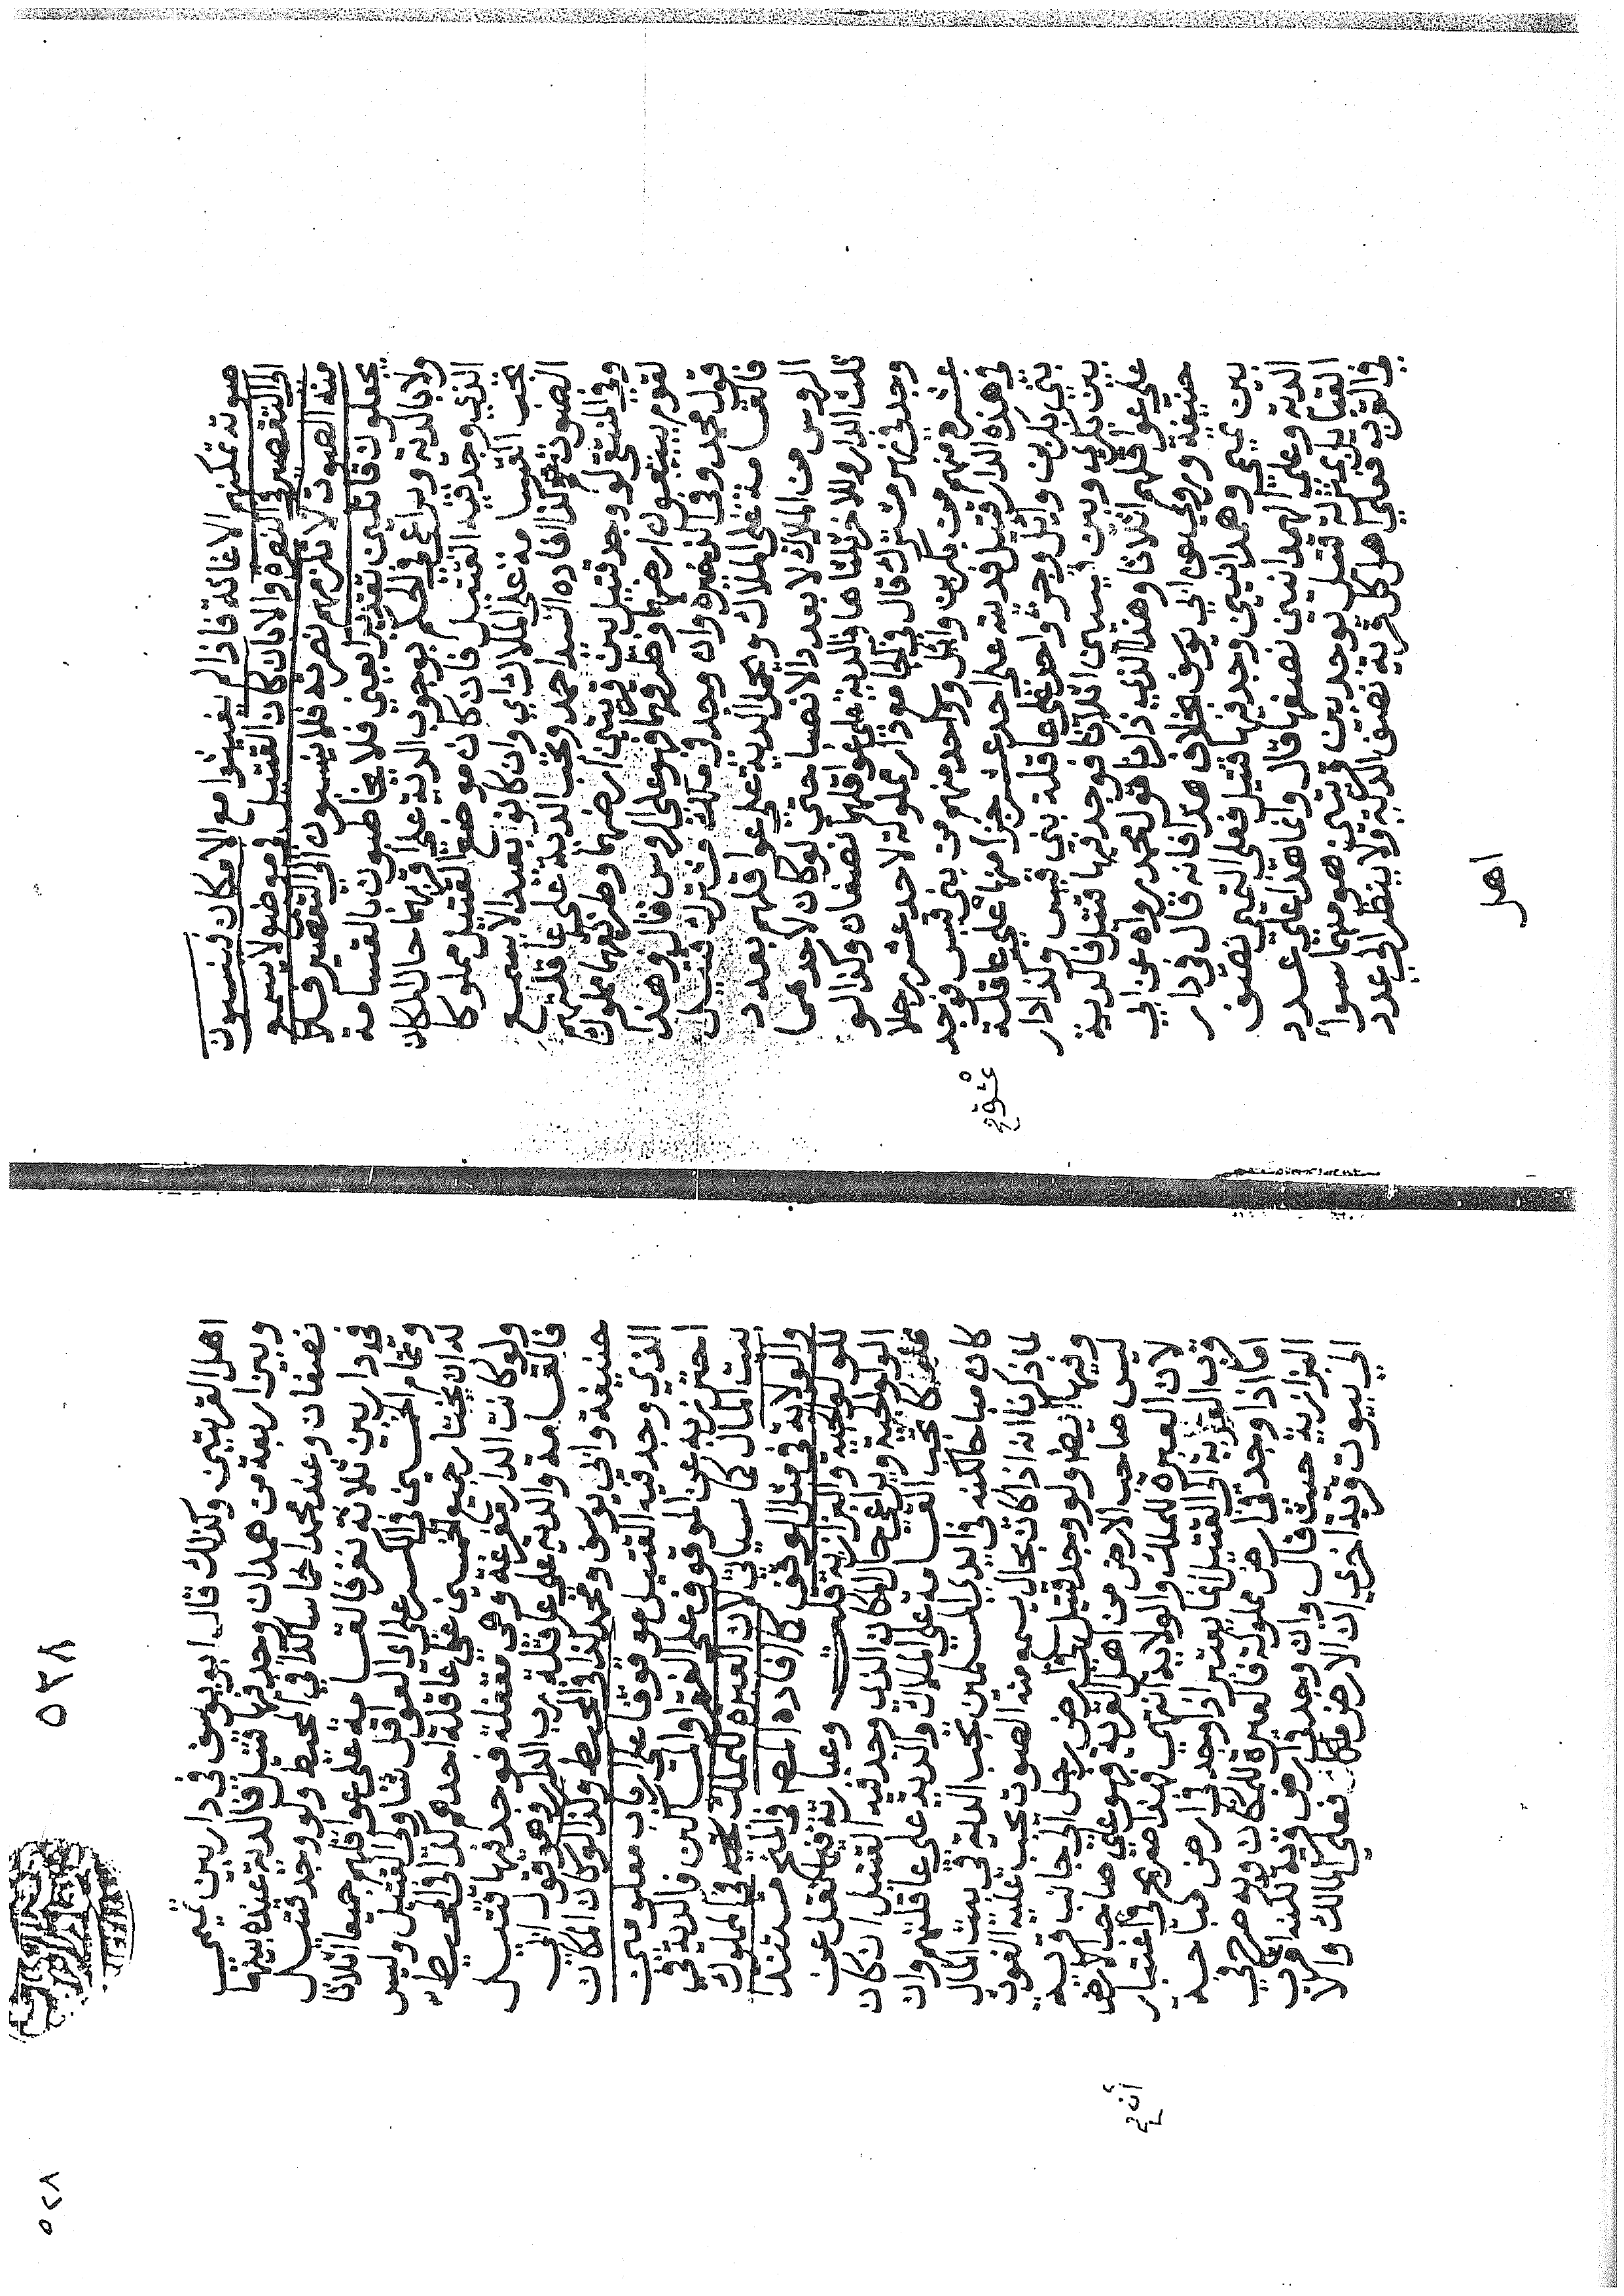 صوته تمكنهم الاغاثة فاذا لم يغيثوا مع الامكان فينسبون
الى التقصير في النصرة والا بان كان القتيل في موضع لا يسمع
منه الصوت لا تلزمهم نصرته فلا ينسبون الى التقصير فلا
يجعلون قاتلين تقديرا يعني فلا يخاطبون بالقسامة
ولا بالدية ويراعى في الحكم بوجوب الدية على اقربهما حال المكان
الذي وجد فيه القتيل فان كان موضع القتيل مملوكا
تجب القسامة على الملاك اي وان كانوا بعيدا لا يسمع
الصوت كذا افاده استاد احمد وتجب الدية على عاقلتهم
وفي المنتقى لو وجد قتيل بين قريتين ارضهما وطريقهما مملوك
لقوم يبيعون ارضهما وطريقهما فهو على الروس قالوا وهذا
قول محمد وفي الذخيرة وان وجد في ملك مشترك قتيل
فالقسامة على الملاك ويحمل الدية على عواقلهم بعدد
الروس من الملاك لا بعدد الانصبا حتى لو كان لاحدهما
ثلث الدار وللاخر ثلثاها فالدية على عواقلهما نصفان وكذا لو
وجد في نهر مشترك قال في الجامع دار مملوكة لاحد عشر رجلا
عشرة منهم من بكر بن وائل وواحد منهم من بني قيس فوجد
في هذه الدار قتيل فديته على احد عشر جزا منها على عاقلة
عشرة
بني بكر بن وايل وجزؤ واحد على عاقلة بني قيس وكذا دار
بين بكري وبين قيسيين اثلاثا فوجد فيها قتيل فالدية
على عواقلهم اثلاثا وهذا الذي ذكرنا قول محمد رواه عن ابي
حنيفة وروي عن ابي يوسف بخلاف هذا فانه قال في دار
بين تميمي وهمدانيين وجد فيها قتيل فعلى التميمي نصف
الدية وعلى الهمدانيين نصفها قال وانما هذا على عدد
القبايل بمنزلة قتيل يوجد بين قريتين هو منهما سواء
في القرب فعلى اهل كل قرية نصف الدية ولا ينظر الى عدد
اهل
٥٣٨
اهل القريتين وكذلك قال ابو يوسف في دار بين تميمي
وبين اربعة من همدان وجد فيها قتيل فالدية عنده بينهما
نصفان وعند محمد اخماسا كذا في المحيط ولو وجد قتيل
في دار بين ثلاثة نفر فالقسامة على عواقلهم جميعا اثلاثا
وتمام الخمسين في الكسر على اي العواقل شا ولي القتيل وليس
له ان يختار جميع الخمسين على عاقلة احدهم كذا في المحيط
ولو كانت الدار مفرغة وهي مقفلة فوجد فيها قتيل
فالقسامة والدية على عاقلة رب الدار وهو قول ابي
حنيفة وابي يوسف ومحمد كذا في المحيط وكذا لو كان المكان
الذي وجد فيه القتيل موقوفا على ارباب معلومين
احترز به عن الموقوف على الفقرا والمساكين فالدية في
بيت المال كما سياتي لان العبرة للملك في المملوك
والولاية في مثل الوقف كذا افاده المص في المنح مستندا
للولوالجية والبزازية قلت وعبارته فيها نقل عن
الولوالجية ويراعى حال المكان الذي وجد فيه القتيل ان كان
تجب القسامة على الملاك والدية على عاقلتهم وان
كان مباحا لكنه في ايدي المسلمين تجب الدية في بيت المال
لما ذكرنا انه اذا كان بحال يسمع منه الصوت يجب عليه الغوث
وفيها ايضا ولو وجد قتيل في ارض رجل الى جانب قرية
ليس صاحب الارض من اهل القرية فهو على صاحب الارض
لان العبرة للملك والولاية انتهى فهذا صريح في اعتبار
ان
قرب القرية الى القتيل انما يعتبر اذا وجد في ارض مباحة
اما اذا وجد في ارض مملوكة فالعبرة للمكان وبه صرح في
البزازية حيث قال وان وجد في ارض قرية لكنه اقرب
الى بيوت قرية اخرى ان الارض ملكا فعلى المالك والا
٥٢٨